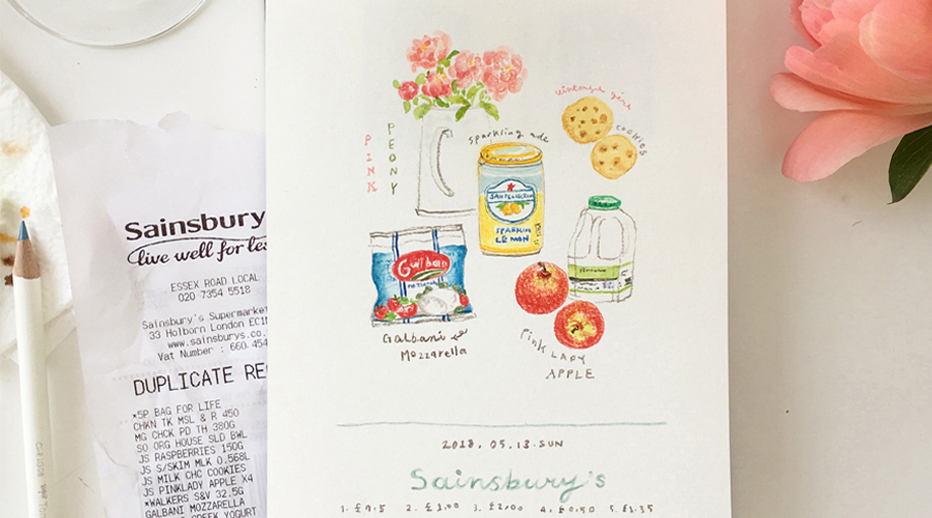 Sainsbury
live well for les
ESSEX ROAD LOCAL
020 7354 5518
Sainsbury's Supermarket
33 Holborn London EC1N
www.sainsburys.co.
Vat Number : 660 454
DUPLICATE RE
*5P BAG FOR LIFE
CHKN TK MSL & R 450
MG CHCK PD TH 380G
SO ORG HOUSE SLD BWL
JS RASPBERRIES 150G
JS S/SKIM MLK 0.568L
JS MILK CHC COOKIES
JS PINKLADY APPLE X4
*WALKERS S&V 32.5G
GALBANI MOZZARELLA
GREEK YOGURT
PINK
PEONY
sparkling ade
cookies
SANPELLEGRINO
SPARKLIN
LEMON
Galbani
Galbani
Mozzarella
Pink LADY
APPLE
2018. 05. 13. SUN
Sainsbury's
1. £9.5 2. £3.00 3. £2.00 4. £0.50 5. £1.35